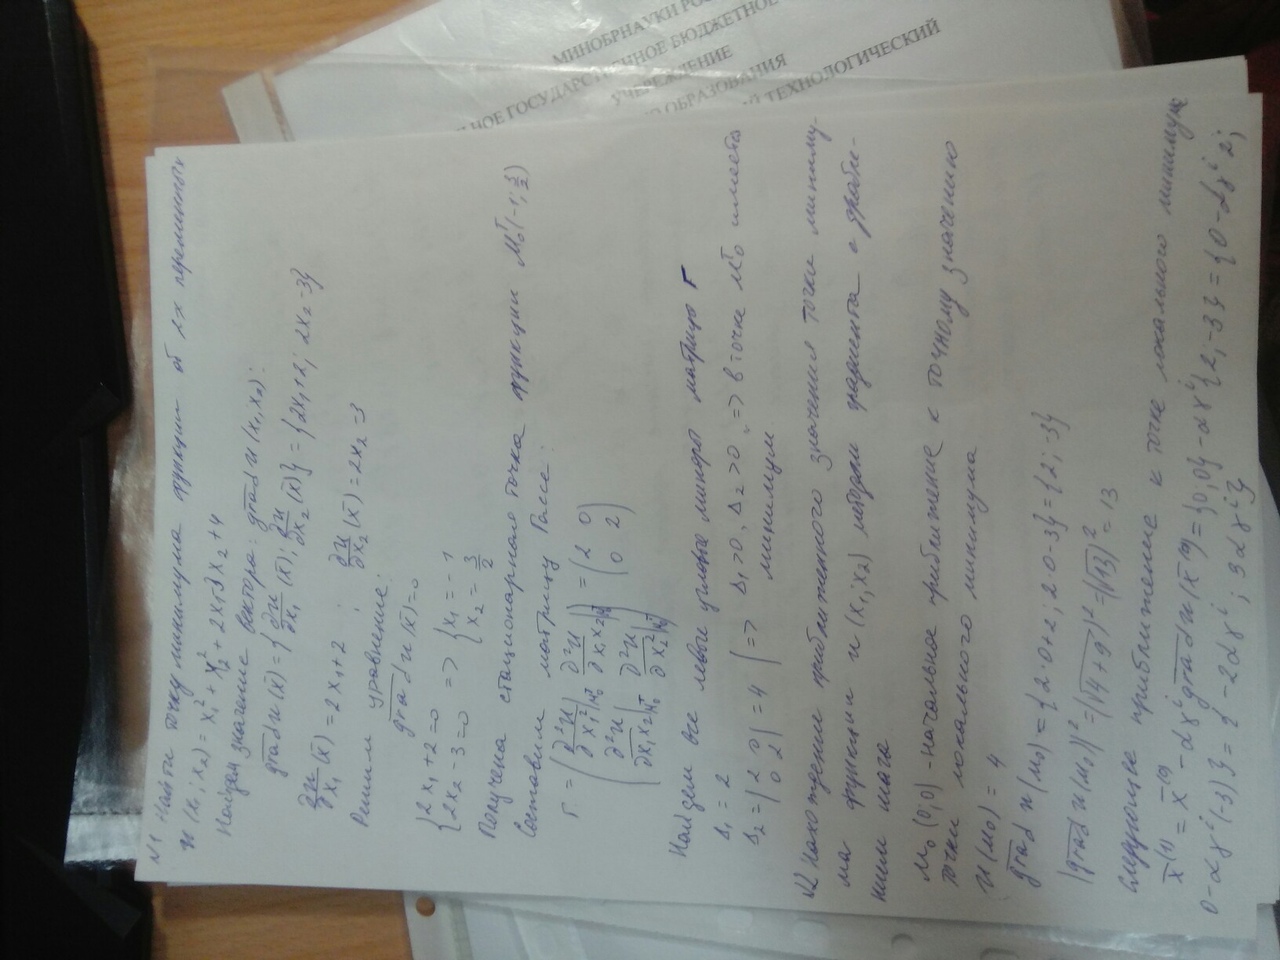 №1 Найти точку минимума функции от 2х переменных
u(x₁; x₂) = x₁² + x₂² + 2x₁-3x₂ + 4
Найдем значение вектора: grad u(x₁; x₂):
grad u(x̄) = {∂u/∂x₁ (x̄); ∂u/∂x₂ (x̄)} = {2x₁+2; 2x₂-3}
∂u/∂x₁ (x̄) = 2x₁+2 ; ∂u/∂x₂ (x̄) = 2x₂-3
Решим уравнение:
grad u(x̄)=0
{2x₁+2=0 2x₂-3=0 => {x₁=-1 x₂=3/2
Получена стационарная точка функции M₀ᵀ(-1; 3/2)
Составим матрицу Гессе:
Г = (∂²u/∂x₁²|M₀ᵀ ∂²u/∂x₁x₂|M₀ᵀ
∂²u/∂x₁x₂|M₀ᵀ ∂²u/∂x₂²|M₀ᵀ) = (2 0
0 2)
Найдем все левые угловые миноры матрицы Г
Δ₁ = 2
Δ₂ = |2 0 0 2| = 4 | => Δ₁>0, Δ₂>0 => в точке M₀ᵀ имеется
минимум
№2 Нахождение приближенного значения точки миниму-
ма функции u(x₁; x₂) методом градиента с дробле-
нием шага
M₀(0;0) - начальное приближение к точному значению
точки локального минимума
u(M₀) = 4
grad u(M₀) = {2·0+2; 2·0-3} = {2; -3}
|grad u(M₀)|² = (√4+9)² = (√13)² = 13
следующее приближение к точке локального минимума
x̄⁽¹⁾ = x̄⁽⁰⁾ - αγⁱ grad u(x̄⁽⁰⁾) = {0,0} - αγⁱ{2,-3} = {0-αγⁱ2;
0-αγⁱ(-3)} = {-2αγⁱ; 3αγⁱ}
МИНОБРНАУКИ
НОЕ ГОСУДАРСТВЕННОЕ БЮДЖЕТНОЕ
УЧРЕЖДЕНИЕ
ОБРАЗОВАНИЯ
ТЕХНОЛОГИЧЕСКИЙ